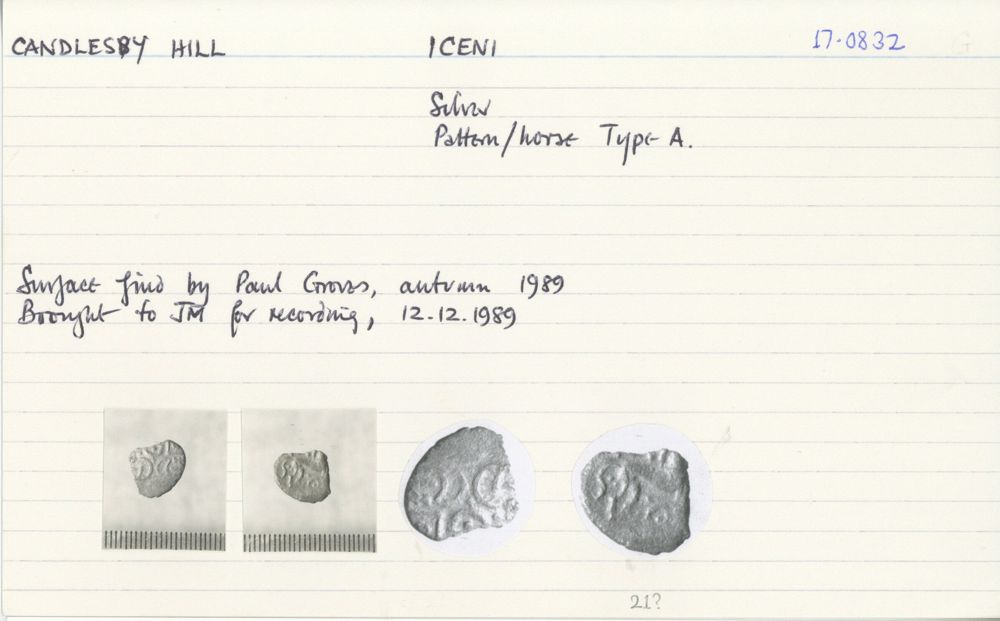 CANDLESBY HILL ICENI 17-0832
Silver
Pattern/horse Type A.
Surface find by Paul Groves, autumn 1989
Brought to JM for recording, 12.12.1989
21?